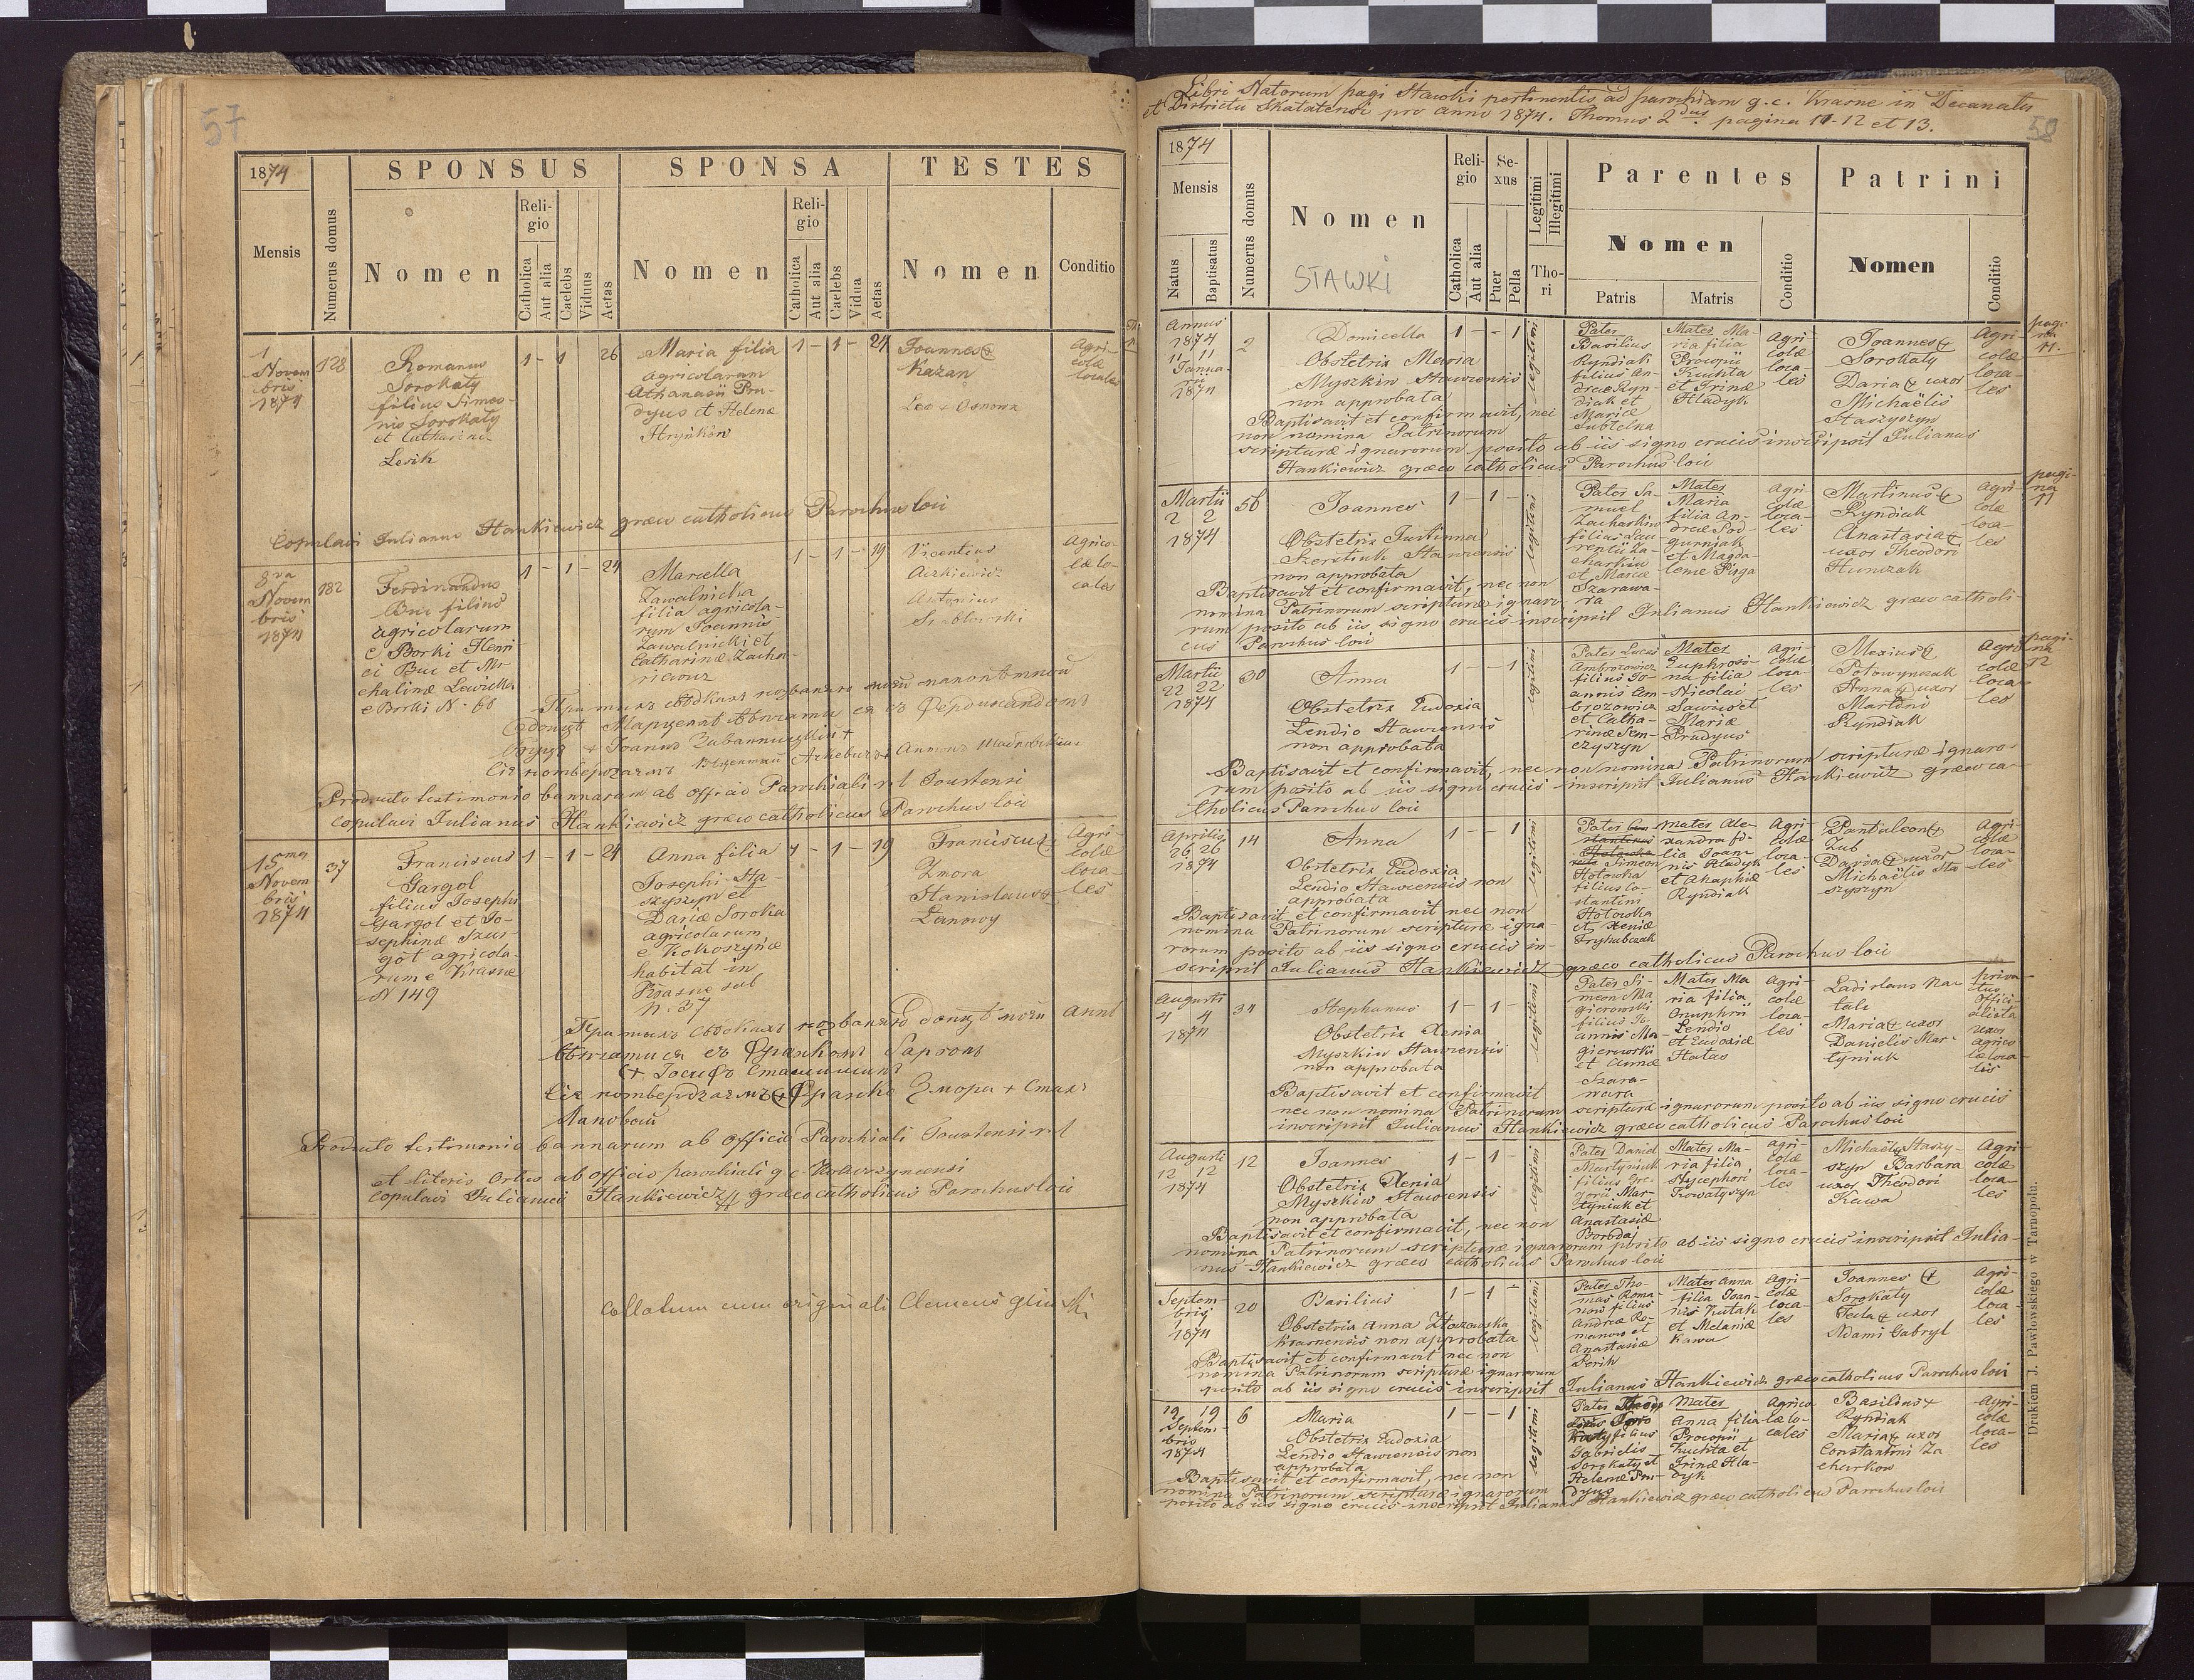 57
1874
SPONSUS
SPONSA
TESTES
Mensis
Numerus domus
Nomen
Religio
Catholica
Aut alia
Caelebs
Viduus
Aetas
Nomen
Religio
Catholica
Aut alia
Caelebs
Vidua
Aetas
Nomen
Conditio
1
Novem
bris
1874
128
Romanus
Sorokaty
filius Simeo-
nis Sorokaty
et Catharinæ
Lesik
1 - 1 26
Maria filia
agricolarum
Athanasii Pru-
dyus et Helenæ
Hrynkow
1 - 1 - 21
Joannes +
Kazan
Leo + Osnowa
Agri-
colæ
locales
Copulavi Julianus Hankiewicz græco catholicus Parochus loci
8va
Novem
bris
1874
182
Ferdinandus
Buc filius
agricolarum
e Borki Henri
ci Buc et Mi-
chalinæ Lewicka
e Borki N. 68
1 - 1 - 24
Marcella
Zawalnicka
filia agricola-
rum Joannis
Zawalnicki et
Catharinæ Zacha-
1 - 1 - 19
Vicentius
Antonius
Agrico-
læ lo-
cales
Producto testimonio bannarum ab officio Parochiali r. l. Toustensi
copulavi Julianus Hankiewicz græco catholicus Parochus loci
15
Novem
bris
1874
37
Franciscus
Gargol
filius Josephi
Gargol et Jo-
sephinæ Szus-
got agricola-
rum e Krasne
N 149
1 - 1 - 24
Anna filia
Josephi Sta-
szyszyn et
Dariæ Soroka
agricolarum
e Kokoszynce
habitat in
Krasne sub
N. 37
1 - 1 - 19
Franciscus +
Zmora
Stanislaus +
Lanowy
Agri-
colæ
loca-
les
Producto testimonio bannarum ab officio Parochiali Toustensi r. l.
et literis ortus ab officio parochiali g. c.
copulavi Julianus Hankiewicz græco catholicus Parochus loci
Collatum cum originali Clemens
Libri Natorum pagi Stawki pertinentis ad parochiam g. c. Krasne in Decanatu
et Districtu Skalatensi pro anno 1874. Thomus 2dus pagina 11-12 et 13.
58
1874
Mensis
Natus
Baptisatus
Numerus domus
Nomen
STAWKI
Religio
Catholica
Aut alia
Sexus
Puer
Pella
Legitimi
Illegitimi
Thori
Parentes
Nomen
Patris
Matris
Conditio
Patrini
Nomen
Conditio
Annus
1874
11 11
Janua-
rii
1874
2
Domicella
Obstetrix Maria
Myszkiw Stawensis
non approbata
1 - - 1
legitimi
Pater
Basilius
Ryndiak
filius An-
dreæ Ryn-
diak et
Mariæ
Subtelka
Mater Ma-
ria filia
Procopii
Kuchta
et Irinæ
Hladyk
Agri-
colæ
loca-
les
Joannes +
Sorokaty
Daria + uxor
Michaëlis
Staszyszyn
Agri-
colæ
loca-
les
pagi-
na
11.
Baptisavit et confirmavit, nec
non nomina Patrinorum
scripturæ ignarorum posito ab iis signo crucis inscripsit Julianus
Hankiewicz græco catholicus Parochus loci
Martii
2 2
1874
56
Joannes
Obstetrix Justinna
Szerstiuk Stawensis
non approbata
1 - 1 -
legitimi
Pater Sa-
muel
Zacharkiw
filius Lau-
rentii Za-
charkiw
et Mariæ
Szarawa-
ra
Mater
Maria
filia An-
dreæ Pod-
gurniak
et Magda-
lenæ Pizga
Agri-
colæ
loca-
les
Martinus +
Ryndiak
Anastasia +
uxor Theodori
Hunczak
Agri-
colæ
loca-
les
pagi-
na
11
Baptisavit et confirmavit, nec non
nomina Patrinorum scripturæ ignaro-
rum posito ab iis signo crucis inscripsit Julianus Hankiewicz græco catholi-
cus Parochus loci
Martii
22 22
1874
30
Anna
Obstetrix Eudoxia
Lendio Stawensis
non approbata
1 - - 1
legitimi
Pater Lucas
Ambrozowicz
filius Jo-
annis Am-
brozowicz
et Catha-
rinæ Sem-
czyszyn
Mater
Euphrosi-
na filia
Nicolai
Sawic et
Mariæ
Prudyus
Agri-
colæ
loca-
les
Alexius +
Anna + uxor
Martini
Ryndiak
Agri-
colæ
loca-
les
pagi-
na
12
Baptisavit et confirmavit, nec non nomina Patrinorum scripturæ ignaro-
rum posito ab iis signo crucis inscripsit Julianus Hankiewicz græco ca-
tholicus Parochus loci
Aprilis
26 26
1874
14
Anna
Obstetrix Eudoxia
Lendio Stawensis non
approbata
1 - - 1
legitimi
Pater
Simeon
Hołowka
filius Co-
stantini
Hołowka
et Xeniæ
Tryhubczak
Mater Ale-
xandra fi-
lia Joan-
nis Hladyk
et Ahaphiæ
Ryndiak
Agri-
colæ
loca-
les
Pantaleon +
Zub
Daria + uxor
Michaëlis Sta-
szyszyn
Agri-
colæ
loca-
les
Baptisavit et confirmavit nec non
nomina Patrinorum scripturæ igna-
rorum posito ab iis signo crucis in-
scripsit Julianus Hankiewicz græco catholicus Parochus loci
Augusti
4 4
1874
34
Stephanus
Obstetrix Xenia
Myszkiw Stawensis
non approbata
1 - 1 -
legitimi
Pater Si-
meon Ma-
gierowski
filius Jo-
annis Ma-
gierowski
et Annæ
Szara-
wara
Mater Ma-
ria filia
Onuphrii
Lendio
et Eudoxiæ
Hatas
Agri-
colæ
loca-
les
Ladislaus Na-
tale
Maria + uxor
Danielis Mar-
tyniuk
priva-
tus
offici-
alista
uxor
agrico-
læ loca-
lis
Baptisavit et confirmavit
nec non nomina Patrinorum scripturæ ignarorum posito ab iis signo crucis
inscripsit Julianus Hankiewicz græco catholicus Parochus loci
Augusti
12 12
1874
12
Joannes
Obstetrix Xenia
Myszkiw Stawensis
non approbata
1 - 1 -
legitimi
Pater Daniel
Martyniuk
filius Gre-
gorii Mar-
tyniuk et
Anastasiæ
Boroday
Mater Ma-
ria filia
Stycephori
Kowałyszyn
agri-
colæ
loca-
les
Michaël + Staszy-
szyn Barbara
uxor Theodori
Kawa
Agri-
colæ
loca-
les
Baptisavit et confirmavit, nec non
nomina Patrinorum scripturæ ignarorum posito ab iis signo crucis inscripsit Julia-
nus Hankiewicz græco catholicus Parochus loci
Septem-
bris
1 1
1874
20
Basilius
Obstetrix Anna
Krasnensis non approbata
1 - 1 -
legitimi
Pater Tho-
mas Roma-
now filius
Andreæ Ro-
manow et
Anastasiæ
Derih
Mater Anna
filia Joan-
nis Kutak
et Melaniæ
Kawa
Agri-
colæ
loca-
les
Joannes +
Sorokaty
Tecla + uxor
Adami Gabryl
Agri-
colæ
loca-
les
Baptisavit et confirmavit nec non
nomina Patrinorum scripturæ ignarorum
posito ab iis signo crucis inscripsit Julianus Hankiewicz græco catholicus Parochus loci
19 19
Septem-
bris
1874
6
Maria
Obstetrix Eudoxia
Lendio Stawensis non
approbata
1 - - 1
legitimi
Pater
filius
Gabrielis
Sorokaty et
Helenæ Pru-
dyus
Mater
Anna filia
Procopii
Kuchta et
Irinæ Hla-
dyk
Agrico-
læ lo-
cales
Basilius +
Ryndiak
Maria + uxor
Constantini Za-
charkow
Agri-
colæ
loca-
les
Baptisavit et confirmavit, nec non
nomina Patrinorum scripturæ ignarorum
posito ab iis signo crucis inscripsit Julianus Hankiewicz græco catholicus Parochus loci
Drukiem J. Pawłowskiego w Tarnopolu.